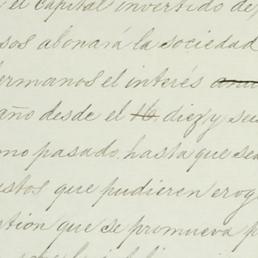 el capital invertido de
sos abonará la sociedad
hermanos el interés
año desde el 16 diez y seis
mo pasado, hasta que sea
stos que pudieren erog
tion que se promueva p